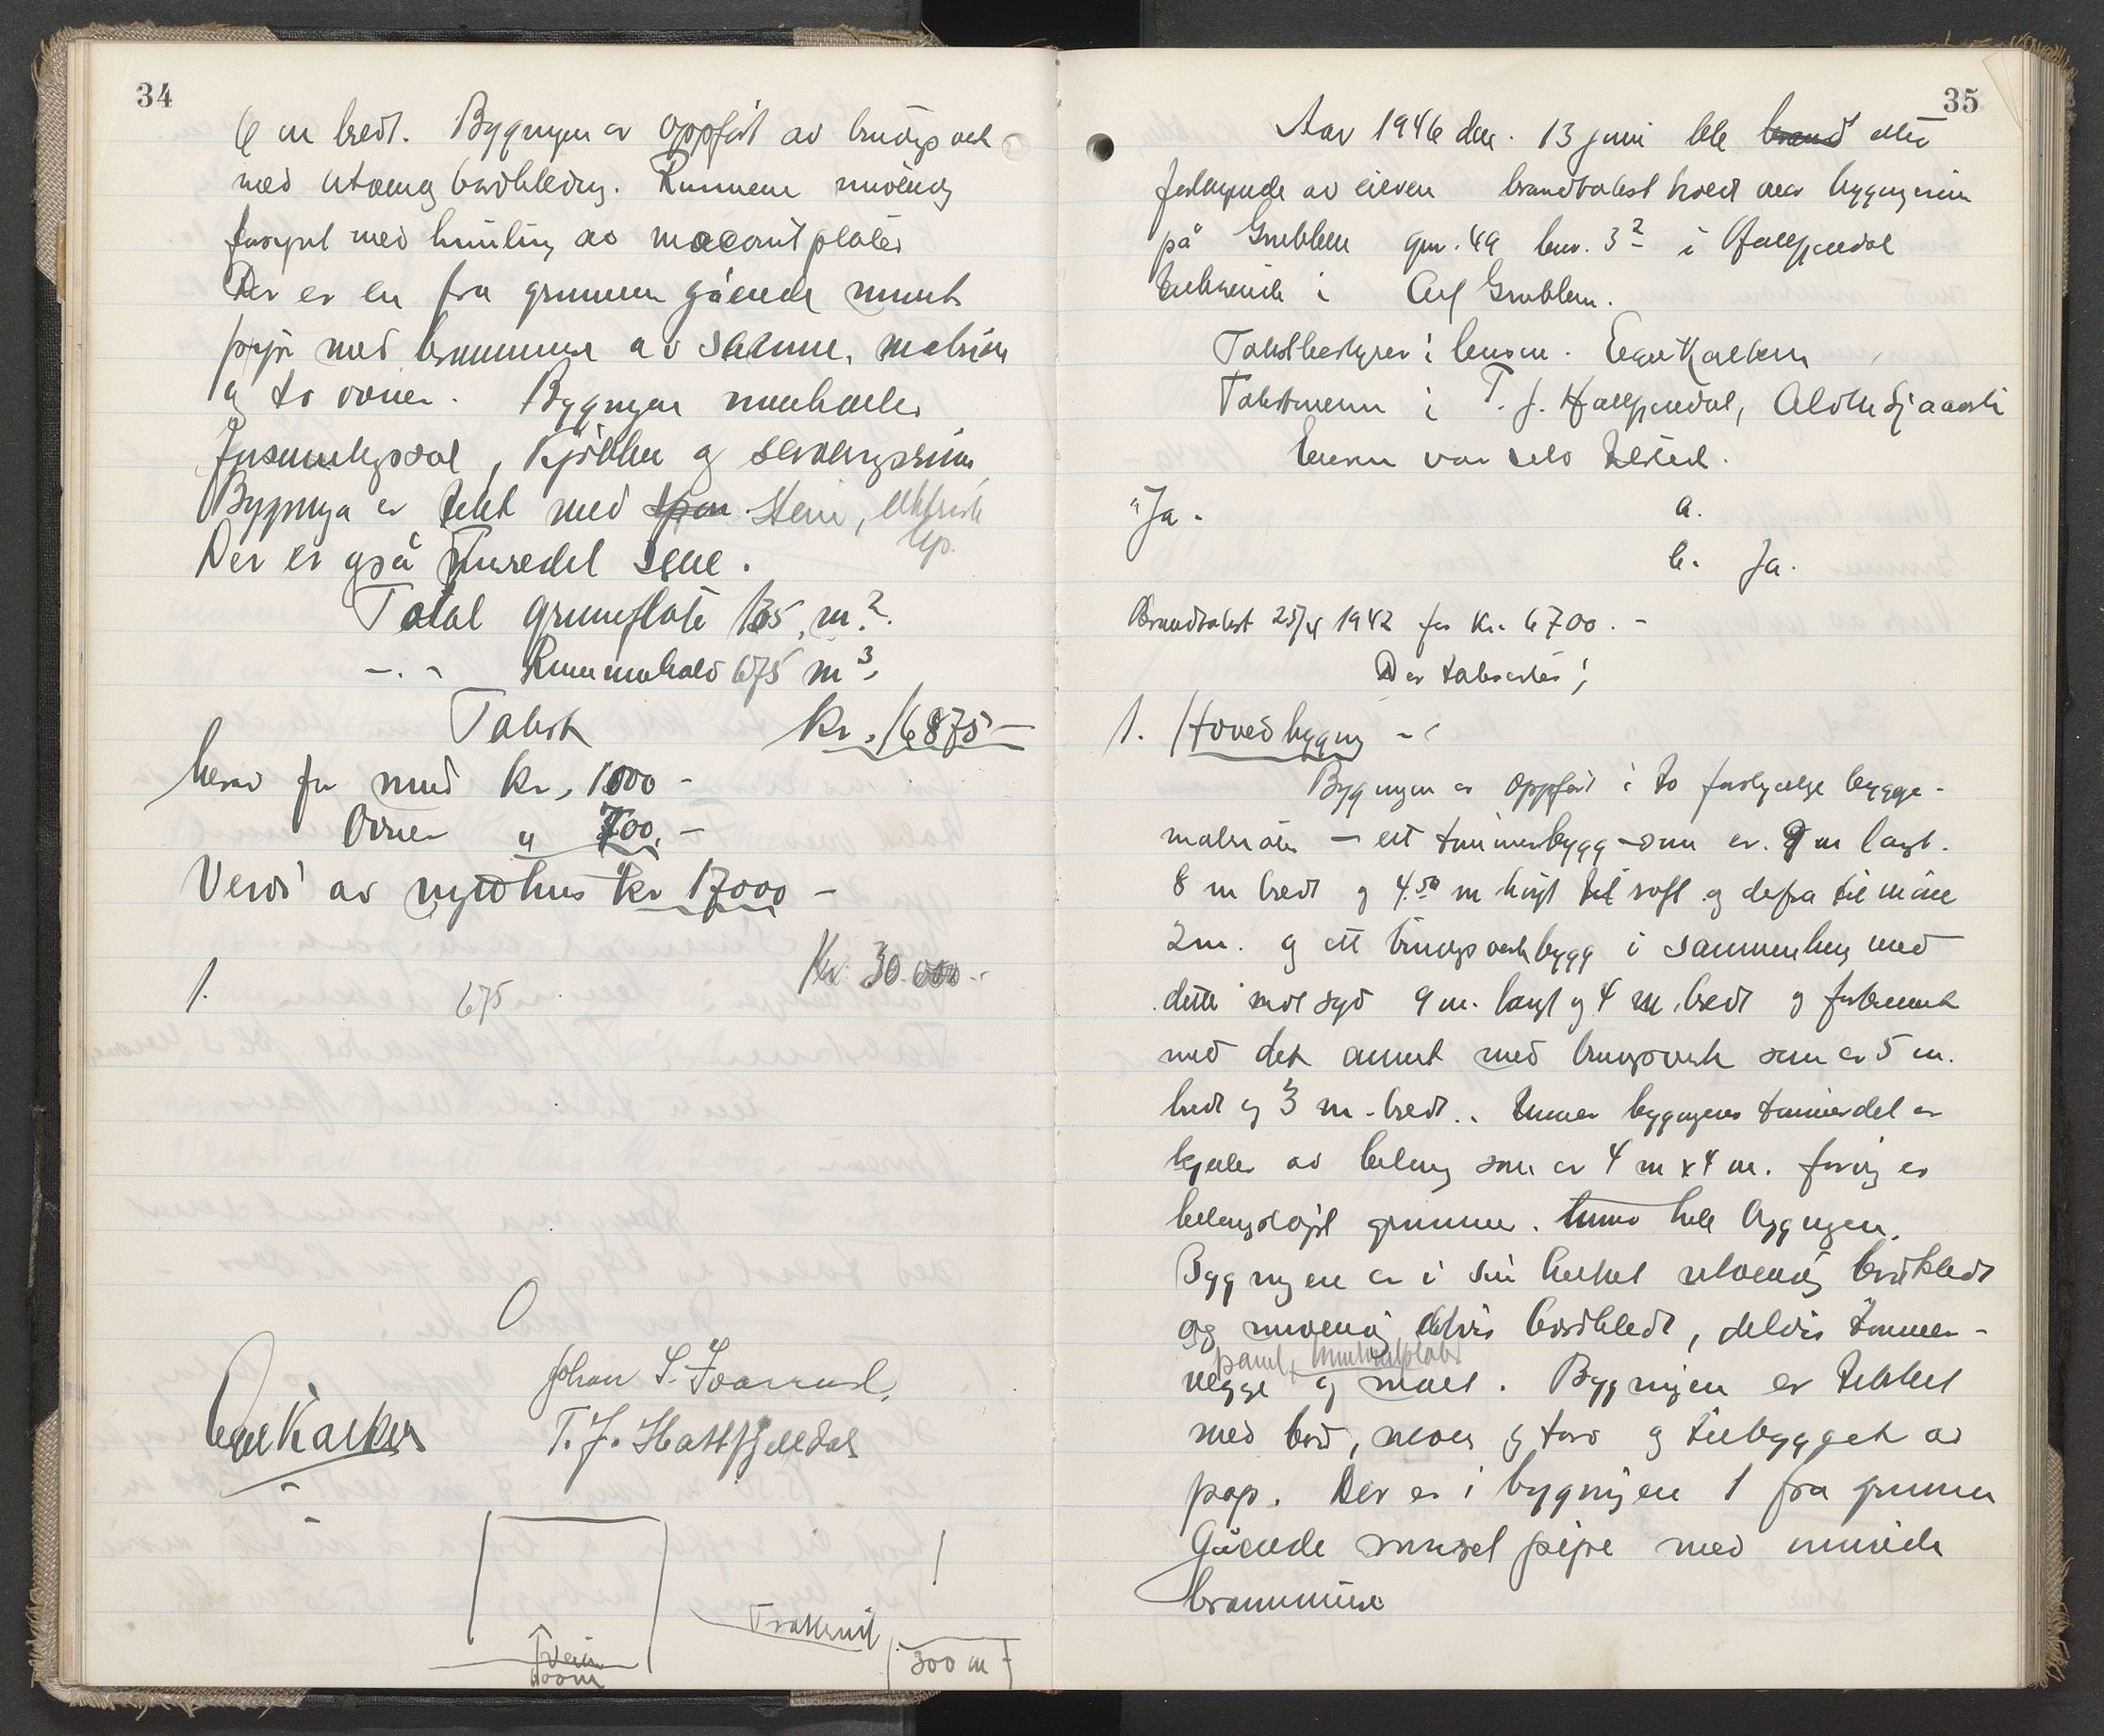 34
6 m bredt. Bygningen er oppført av bindingsverk
med utvendig bordkledning. Rummene innvendig
forsynt med himling av masonitplater
Der er en fra grunnen gående muret
pipe med brannmur av samme materiale
og to ovner. Bygningen inneholder
forsamlingssal, kjøkken og serveringsrum
Bygninga er tekt med span stein, elektrisk
lys.
Der er også innredet scene.
Total grunnflate 135 m².
— . — Rumminnhold 675 m³,
Takst kr. 16875 —
herav for mur kr. 1000 —
Ovner " 700. —
Verdi av nytt hus kr 17000 —
Kr. 30.000.-
1. 675
0
Johan S.
T. J. Hattfjelldal
Veien
300 m
35
Aar 1946 den 13 juni ble brand etter
forlangende av eieren brandtakst holdt over bygningene
på Grubben gnr. 49 bnr. 32 i Hattfjelldal
tilhørende Grubben.
Takstbestyrer: lensm.
Takstmenn: T. J. Hattfjelldal,
Eieren var selv tilsted.
"Ja. a.
b. Ja.
Brandtakst 1942 for kr. 6700. -
Der takseredes:
1. Hovedbygning -
Bygningen er oppført i to forskjelige bygge-
materialer — ett tømmerbygg som er 9 m langt.
8 m bredt og 4.50 m høgt til loft og derfra til møne
2 m. og ett bindingsverkbygg i sammenheng med
dette mot syd 9 m. langt og 4 m bredt og forbundet
med det annet med bindingsverk som er 5 m.
bredt og 3 m. bredt. Under bygningens tømmerdel er
kjeller av betong som er 4 m x 4 m. forøvrig er
betongstøpt grunnmur under hele bygningen.
Bygningen er i sin helhet utvendig bordkledt
og innvendig delvis bordkledt, delvis tømmer-
panel,
vegge og malt. Bygningen er tekket
med bord, never og torv og tilbygget av
pap. Der er i bygningen 1 fra grunnen
Gående muret pipe med murede
brannmure